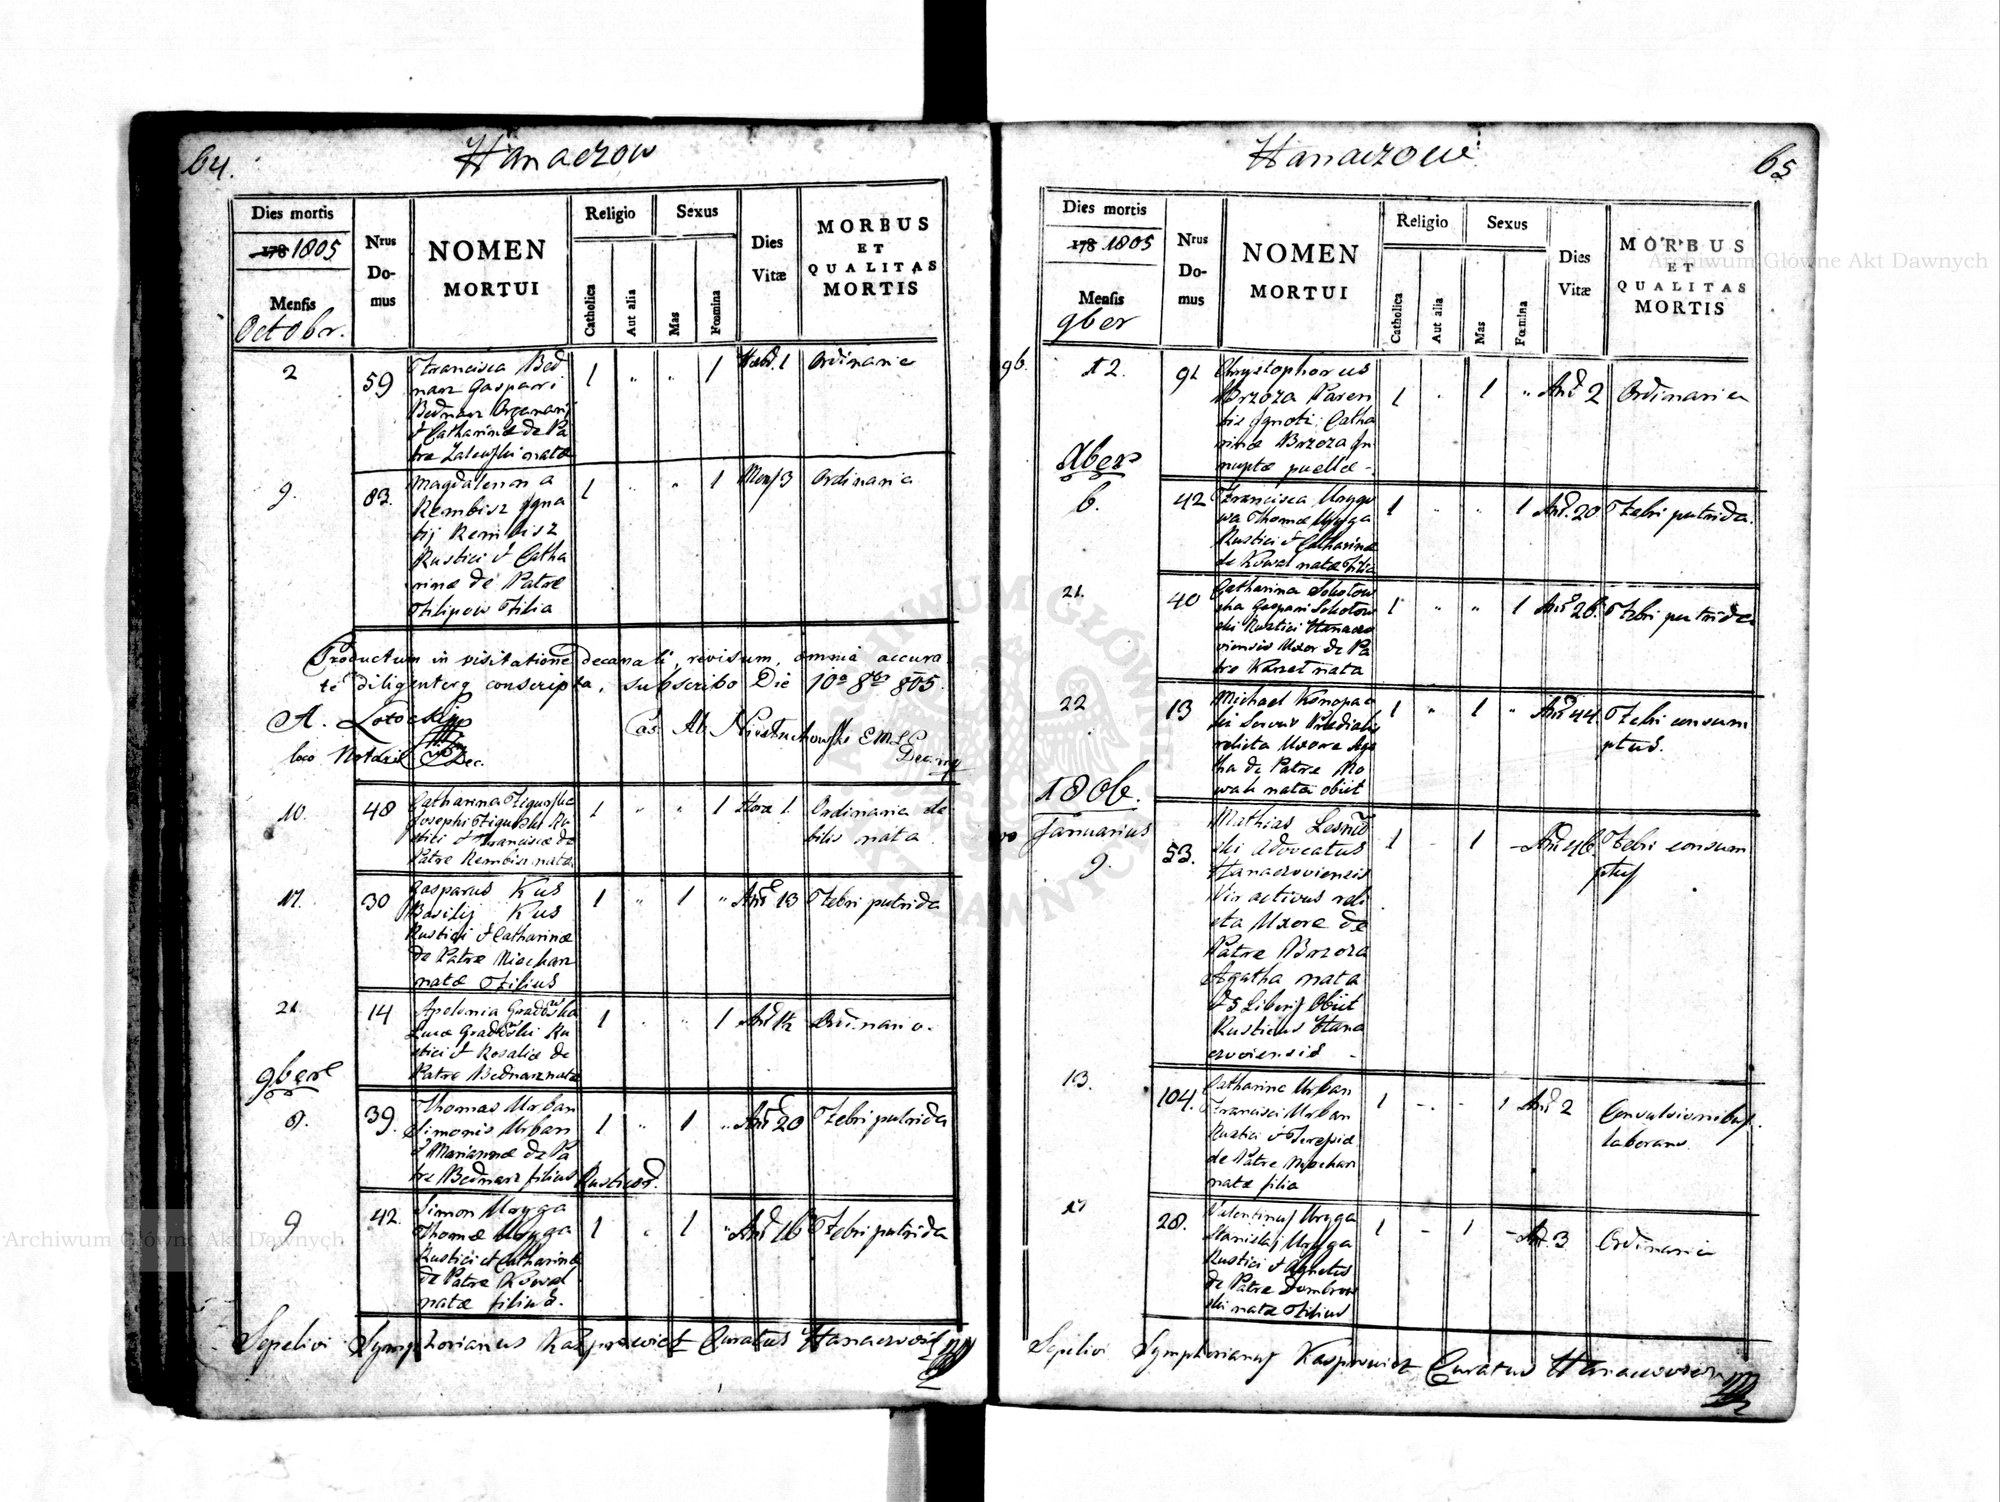 64.
Hanaczow
Dies mortis
178 1805
Mensis
Octobr.
Nrus
Do-
mus
NOMEN
MORTUI
Religio
Catholica
Aut alia
Sexus
Mas
Fœmina
Dies
Vitæ
MORBUS
ET
QUALITAS
MORTIS
2
59
Francisca Bed
narz Gaspari
Bednarz Organarij
& Catharinæ de Pa
tre Zalewski natæ
1 " " 1
Hebd. 1
Ordinaria
9.
83.
Magdalenna
Rembisz Igna
tij Rembisz
Rustici & Catha
rinæ de Patre
Filipow Filia
1 " " 1
Mens 3
Ordinaria
Productum in visitatione decanali, revisum, omnia accura
te diligenterq conscripta, subscribo Die 10a 8bris 805.
A. Lotocki
loco Notarii Dec.
10.
48
Catharina Figurska
Josephi Figurski Ru
stici & Franciscæ de
Patre Rembisz nata
1 " " 1
Hora 1.
Ordinaria de
bilis nata
17.
30
Gasparus Kus
Basilij Kus
Rustici & Catharinæ
de Patre Niochan
natæ Filius
1 " 1 "
Ani 13
Febri putrida
21
14
Apolonia Gradowska
Lucæ Gradowski Ru
stici & Rosaliæ de
Patre Bednarz nata
1 " " 1
Ordinaria.
9bere
8.
39.
Thomas Urban
Simonis Urban
& Mariannæ de Pa
tre Bednarz filius Rusticor.
1 " 1 "
Ani 20
Febri putrida
9
42.
Simon Uryga
Thomæ Uryga
Rustici et Catharinæ
de Patre Kowal
natæ filius.
1 " 1 "
An 16
Febri putrida
Sepelivi Symphorianus Kasprowicz Curatus Hanaczovien
65
Hanaczow
Dies mortis
178 1805
Mensis
9ber
Nrus
Do-
mus
NOMEN
MORTUI
Religio
Catholica
Aut alia
Sexus
Mas
Fœmina
Dies
Vitæ
MORBUS
ET
QUALITAS
MORTIS
96.
12.
91
Chrystophorus
Brzoza Paren
tis Ignoti, Catha
rinæ Brzoza In
nuptæ puellæ -
1 " 1 "
An 2
Ordinaria
Xbers
6.
42
Francisca Urygo
wa Thomæ Uryga
Rustici & Catharinæ
de Kowal natæ Filia
1 " " 1
An. 20
Febri putrida.
21.
40
Catharina Sokotow
ska Gaspari Sokotow
ski Rustici Hanaczo
viensis Uxor de Pa
tre Karzet nata
1 " " 1
An 26.
Febri putrida
22
13
Michael Konopac
ki Servus Prædialis
relicta Uxore Aga
tha de Patre No
wak nata obiit
1 " 1 "
An 44
Febri consum
ptus.
1806.
Januarius
9.
53.
Mathias Lesnic
ski Advocatus
Hanaczoviensis
Vir activus reli
cta Uxore de
Patre Brzoza
Agatha nata
& 5 Liberis Obiit
Rusticus Hana
czoviensis -
1 - 1 -
An 46.
Febri consum
ptus
13.
104.
Catharina Urban
Francisci Urban
Rustici & Teresiæ
de Patre Niochan
natæ filia
1 - - 1
An 2
Convulsionibus
laborans.
17
28.
Valentinus Uryga
Stanislaj Uryga
Rustici & Agnetis
de Patre Dombrow
ski natæ Filius
1 - 1 -
An. 3
Ordinaria
Sepelivi Symphorianus Kasprowicz Curatus Hanaczovien
Archiwum Główne Akt Dawnych
Archiwum Główne Akt Dawnych
ARCHIWUM GŁÓWNE AKT DAWNYCH